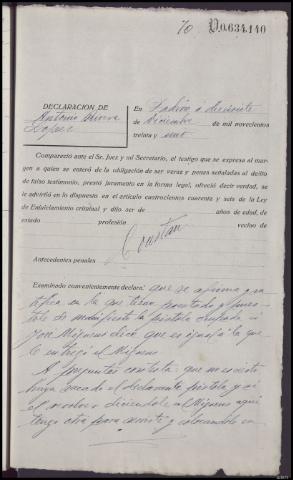 70 P.0.634.140
DECLARACION DE
Antonio
López
En a diecisiete
de Diciembre de mil novecientos
treinta y uno
Compareció ante el Sr. Juez y mi Secretario, el testigo que se expresa al mar-
gen a quien se enteró de la obligación de ser veraz y penas señaladas al delito
de falso testimonio, prestó juramento en la forma legal, ofreció decir verdad, se
le advirtió en lo dispuesto en el artículo cuatrocientos cuarenta y seis de la Ley
de Enjuiciamiento criminal y dijo ser de años de edad, de
estado profesión vecino de
Constan
Antecedentes penales
Examinado convenientemente declara: que se afirma y ra-
tifica en la que tiene prestada y pues-
tole de manifiesto la pistola ocupada a
José dice que es igual a la que
le entregó el
A preguntas contesta: que no es cierto
haya sacado el declarante pistola y
el diciéndole al aquí
tengo otra para y colocándole en